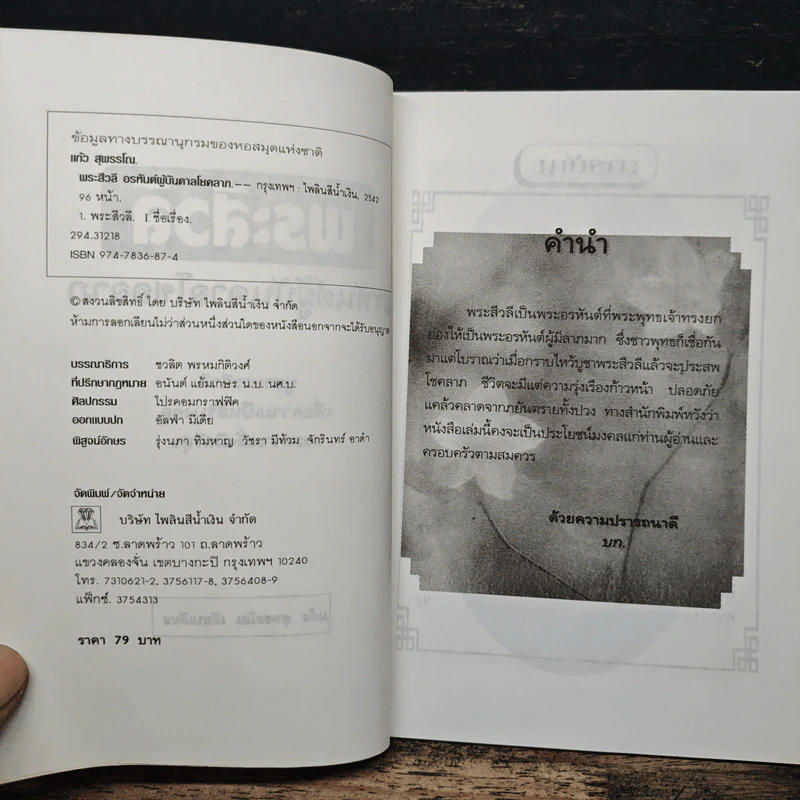 ข้อมูลทางบรรณานุกรมของหอสมุดแห่งชาติ
แก้ว สุพรรโณ.
พระสีวลี อรหันต์ผู้บันดาลโชคลาภ.-- กรุงเทพฯ : ไพลินสีน้ำเงิน, 2542
96 หน้า.
1. พระสีวลี. I ชื่อเรื่อง.
294.31218
ISBN 974-7836-87-4
© สงวนลิขสิทธิ์ โดย บริษัท ไพลินสีน้ำเงิน จำกัด
ห้ามการลอกเลียนไม่ว่าส่วนหนึ่งส่วนใดของหนังสือนอกจากจะได้รับอนุญาต
บรรณาธิการ ชวลิต พรหมกิติวงศ์
ที่ปรึกษากฎหมาย อนันต์ แย้มเกษร น.บ. นศ.บ.
ศิลปกรรม โปรคอมกราฟฟิค
ออกแบบปก อัลฟ่า มีเดีย
พิสูจน์อักษร รุ่งนภา ทิมหาญ วัชรา มีท้วม จักรินทร์ อาดำ
จัดพิมพ์/จัดจำหน่าย
บริษัท ไพลินสีน้ำเงิน จำกัด
834/2 ซ.ลาดพร้าว 101 ถ.ลาดพร้าว
แขวงคลองจั่น เขตบางกะปิ กรุงเทพฯ 10240
โทร. 7310621-2, 3756117-8, 3756408-9
แฟ็กซ์. 3754313
ราคา 79 บาท
คำนำ
พระสีวลีเป็นพระอรหันต์ที่พระพุทธเจ้าทรงยก
ย่องให้เป็นพระอรหันต์ผู้มีลาภมาก ซึ่งชาวพุทธก็เชื่อกัน
มาแต่โบราณว่าเมื่อกราบไหว้บูชาพระสีวลีแล้วจะประสพ
โชคลาภ ชีวิตจะมีแต่ความรุ่งเรืองก้าวหน้า ปลอดภัย
แคล้วคลาดจากภยันตรายทั้งปวง ทางสำนักพิมพ์หวังว่า
หนังสือเล่มนี้คงจะเป็นประโยชน์มงคลแก่ท่านผู้อ่านและ
ครอบครัวตามสมควร
ด้วยความปรารถนาดี
บก.